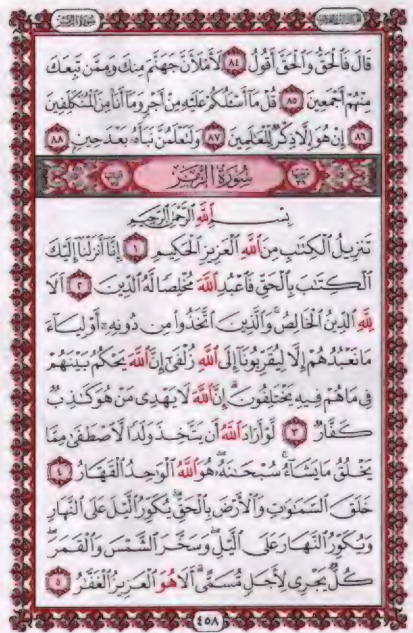 سُورَةُ الزُّمَرِ
قَالَ فَٱلْحَقُّ وَٱلْحَقَّ أَقُولُ ٨٤ لَأَمْلَأَنَّ جَهَنَّمَ مِنكَ وَمِمَّن تَبِعَكَ
مِنْهُمْ أَجْمَعِينَ ٨٥ قُلْ مَآ أَسْـَٔلُكُمْ عَلَيْهِ مِنْ أَجْرٍ وَمَآ أَنَا۠ مِنَ ٱلْمُتَكَلِّفِينَ
٨٦ إِنْ هُوَ إِلَّا ذِكْرٌ لِّلْعَٰلَمِينَ ٨٧ وَلَتَعْلَمُنَّ نَبَأَهُۥ بَعْدَ حِينٍۭ ٨٨
سُورَةُ الزُّمَرِ
بِسْمِ ٱللَّهِ ٱلرَّحْمَٰنِ ٱلرَّحِيمِ
تَنزِيلُ ٱلْكِتَٰبِ مِنَ ٱللَّهِ ٱلْعَزِيزِ ٱلْحَكِيمِ ١ إِنَّآ أَنزَلْنَآ إِلَيْكَ
ٱلْكِتَٰبَ بِٱلْحَقِّ فَٱعْبُدِ ٱللَّهَ مُخْلِصًا لَّهُ ٱلدِّينَ ٢ أَلَا
لِلَّهِ ٱلدِّينُ ٱلْخَالِصُ ۚ وَٱلَّذِينَ ٱتَّخَذُوا۟ مِن دُونِهِۦٓ أَوْلِيَآءَ
مَا نَعْبُدُهُمْ إِلَّا لِيُقَرِّبُونَآ إِلَى ٱللَّهِ زُلْفَىٰٓ إِنَّ ٱللَّهَ يَحْكُمُ بَيْنَهُمْ
فِى مَا هُمْ فِيهِ يَخْتَلِفُونَ ۗ إِنَّ ٱللَّهَ لَا يَهْدِى مَنْ هُوَ كَٰذِبٌ
كَفَّارٌ ٣ لَّوْ أَرَادَ ٱللَّهُ أَن يَتَّخِذَ وَلَدًا لَّٱصْطَفَىٰ مِمَّا
يَخْلُقُ مَا يَشَآءُ ۚ سُبْحَٰنَهُۥ ۖ هُوَ ٱللَّهُ ٱلْوَٰحِدُ ٱلْقَهَّارُ ٤
خَلَقَ ٱلسَّمَٰوَٰتِ وَٱلْأَرْضَ بِٱلْحَقِّ ۖ يُكَوِّرُ ٱلَّيْلَ عَلَى ٱلنَّهَارِ
وَيُكَوِّرُ ٱلنَّهَارَ عَلَى ٱلَّيْلِ ۖ وَسَخَّرَ ٱلشَّمْسَ وَٱلْقَمَرَ ۖ
كُلٌّ يَجْرِى لِأَجَلٍ مُّسَمًّى ۗ أَلَا هُوَ ٱلْعَزِيزُ ٱلْغَفَّٰرُ ٥
٤٥٨